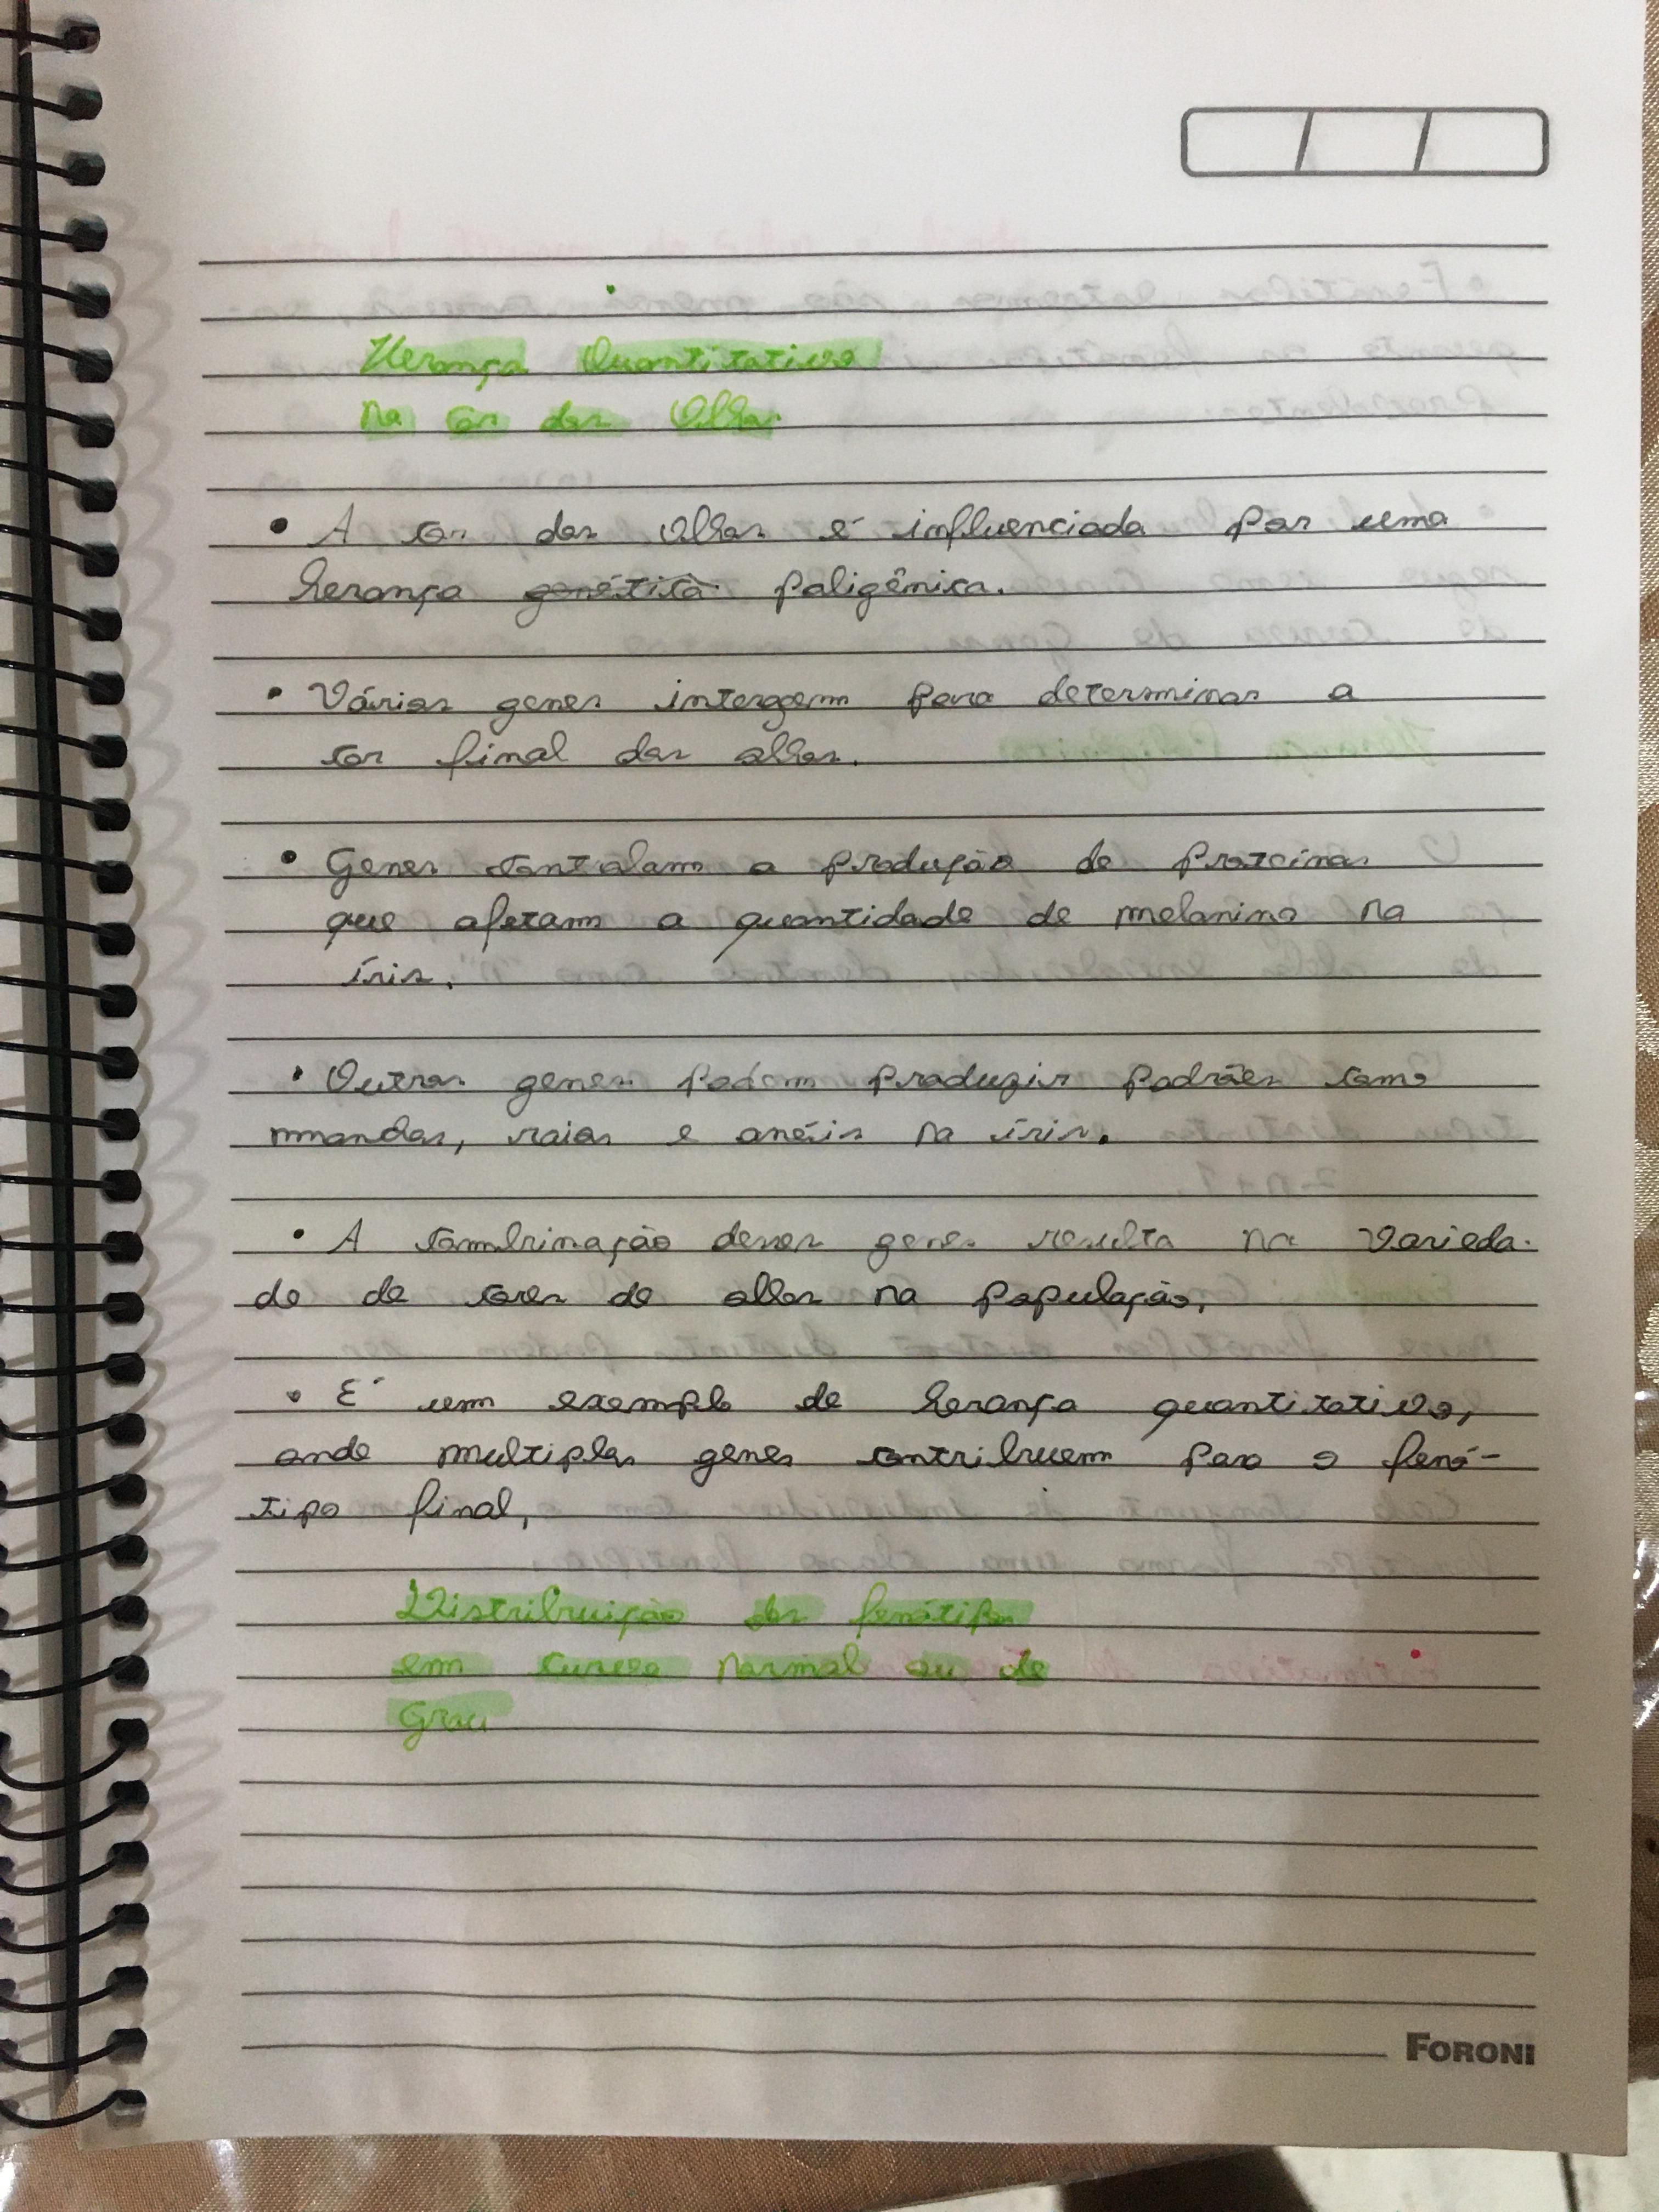 Herança Quantitativa
na cor dos Olhos
• A cor dos Olhos é influenciada por uma
herança genética poligênica.
• Vários genes interagem para determinar a
cor final dos olhos.
• Genes controlam a produção de proteínas
que afetam a quantidade de melanina na
íris.
• Outros genes podem produzir padrões como
manchas, raios e anéis na íris.
• A combinação desses genes resulta na varieda-
de de cores de olhos na população.
• É um exemplo de herança quantitativa,
onde multiplos genes contribuem para o fenó-
tipo final,
Distribuição dos fenótipos
em curva normal ou de
FORONI